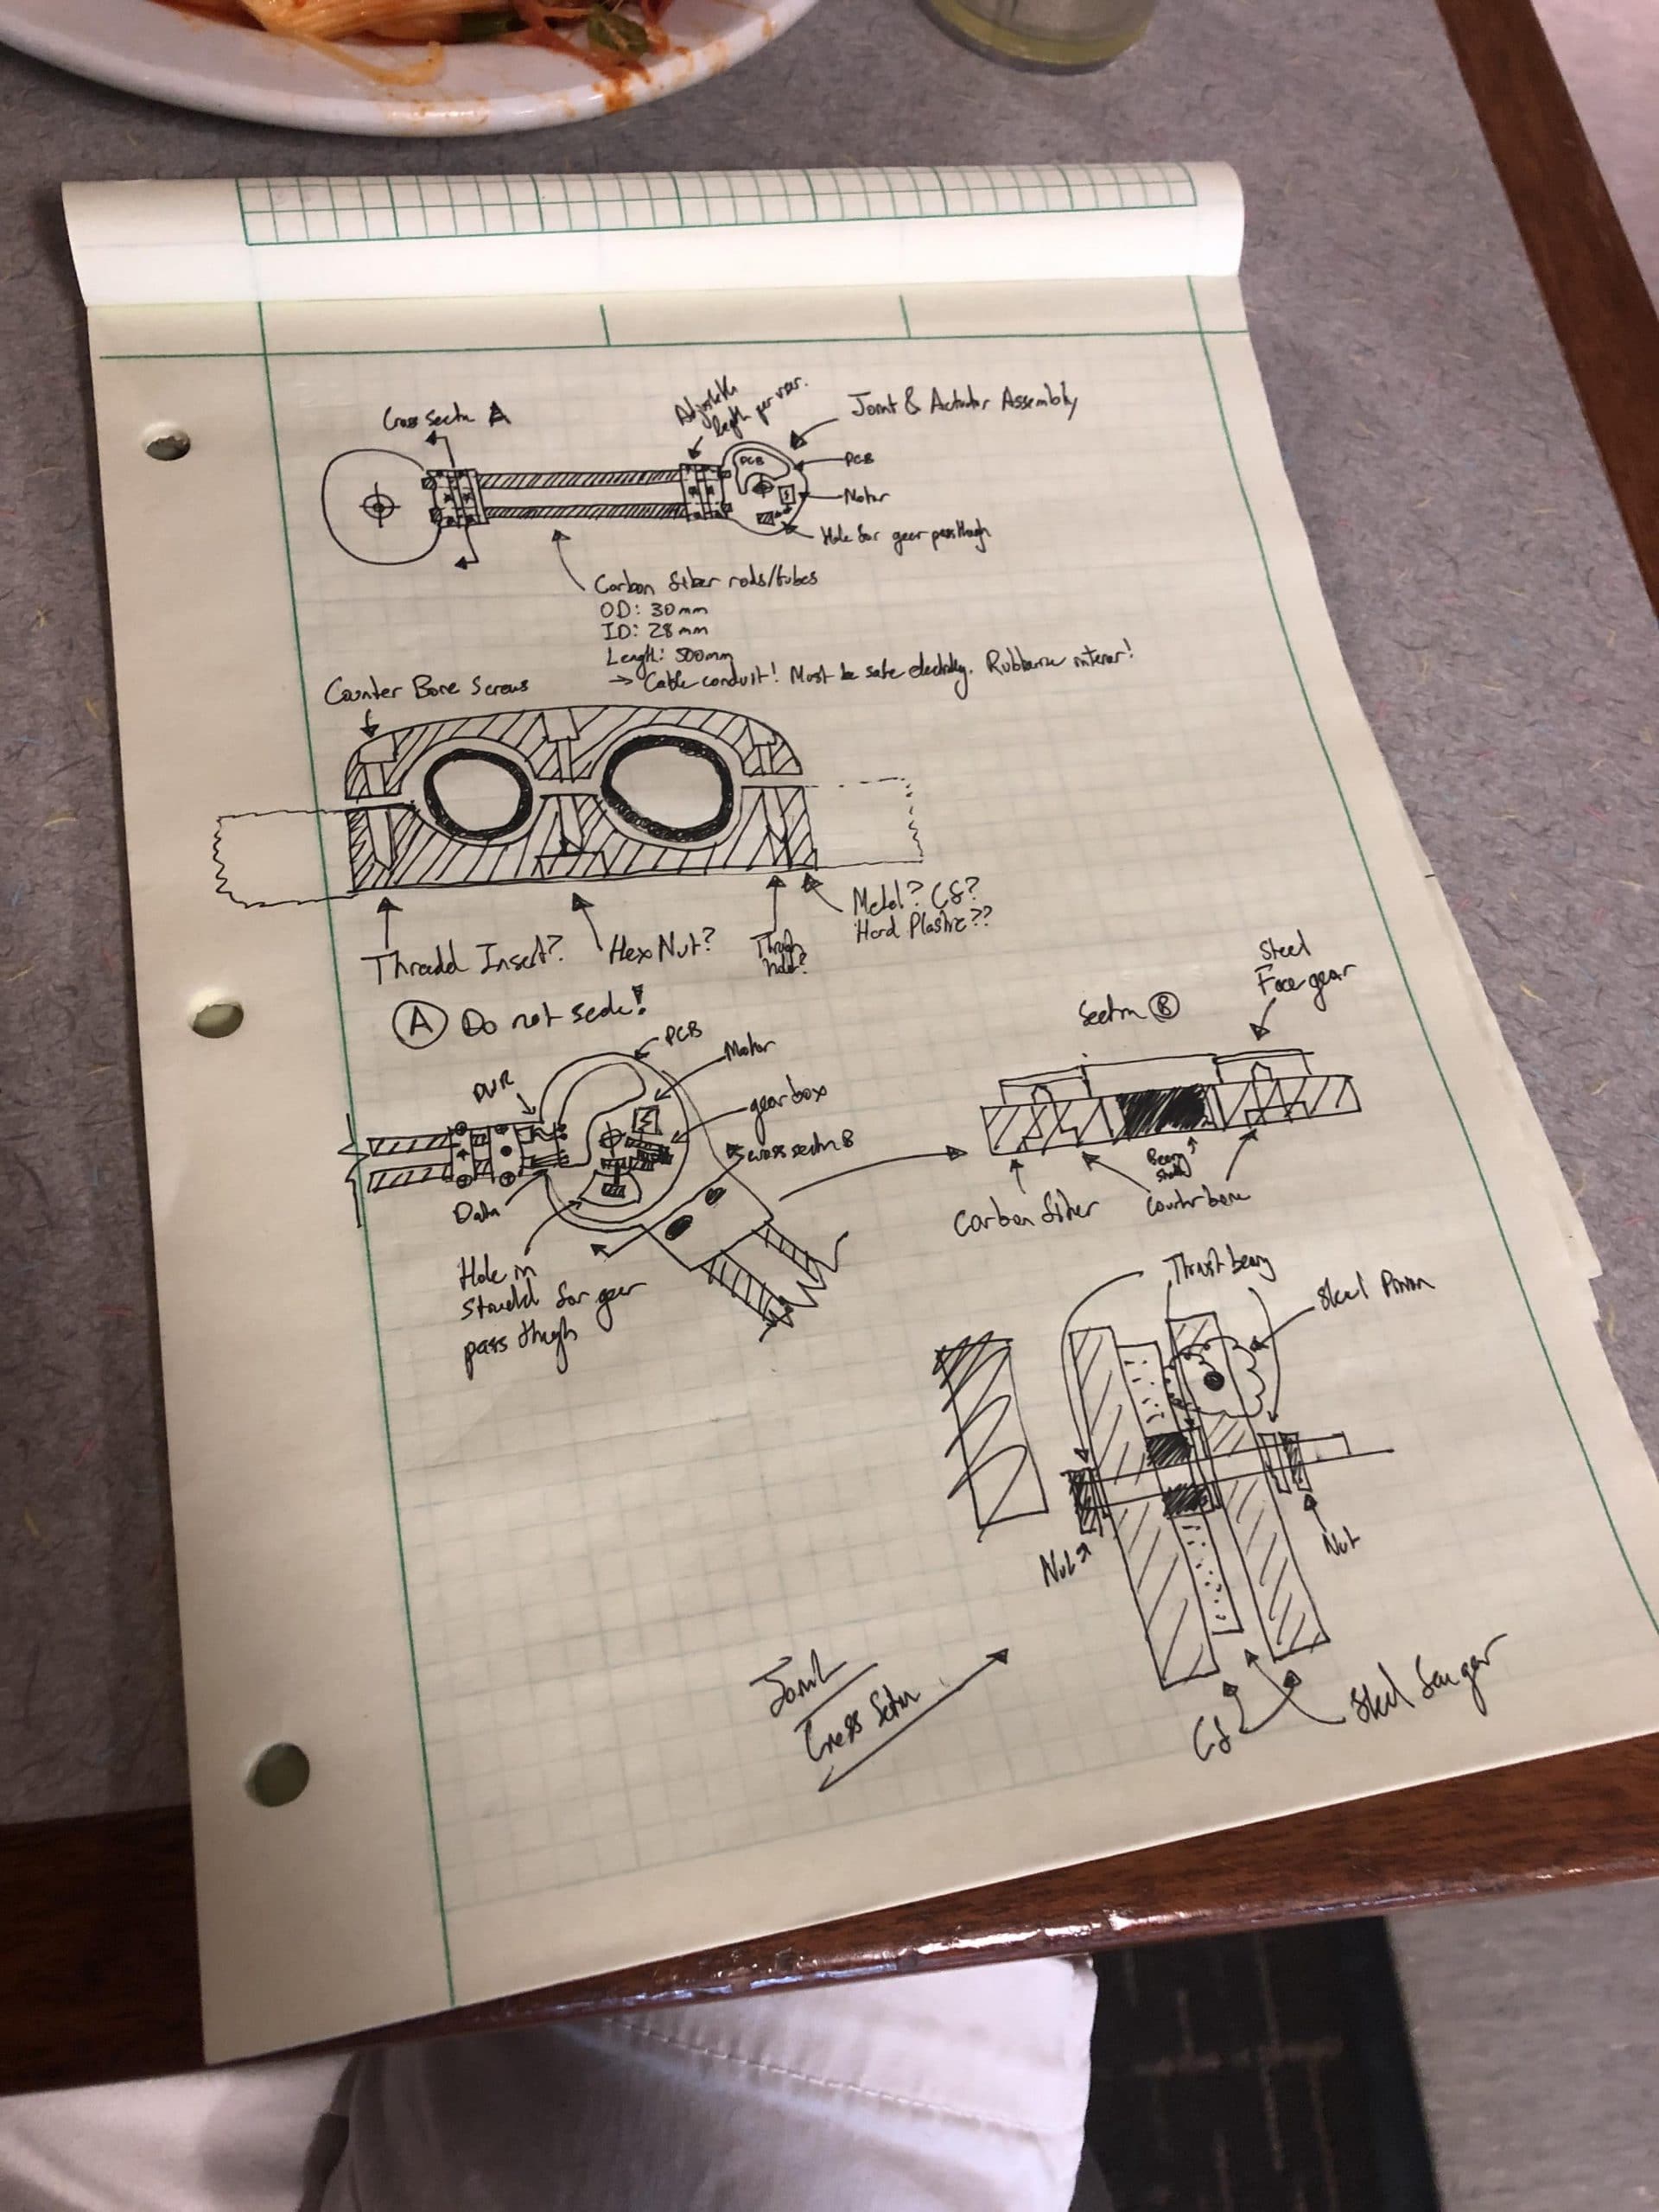 Cross sectn A
Adjustable
length per user.
Joint & Actuator Assembly
PCB
PCB
Motor
Hole for gear passthough
Carbon fiber rods/tubes
OD: 30mm
ID: 28mm
Length: 500mm
→ Cable conduit! Must be safe electrically. Rubberize interior!
Counter Bore Screws
Thread Insert?
Hex Nut?
Through
hole?
Metal? Cf?
Hard Plastic??
A Do not scale!
Steel
Face gear
Section B
PCB
Motor
PWR
gear box
cross sectn B
Data
Hole in
for gear
pass though
Carbon fiber
Counterbore
Thrust bearing
Steel Pinion
Nut
Nut
Joint
Cross Sectn
Cf
Steel face gear